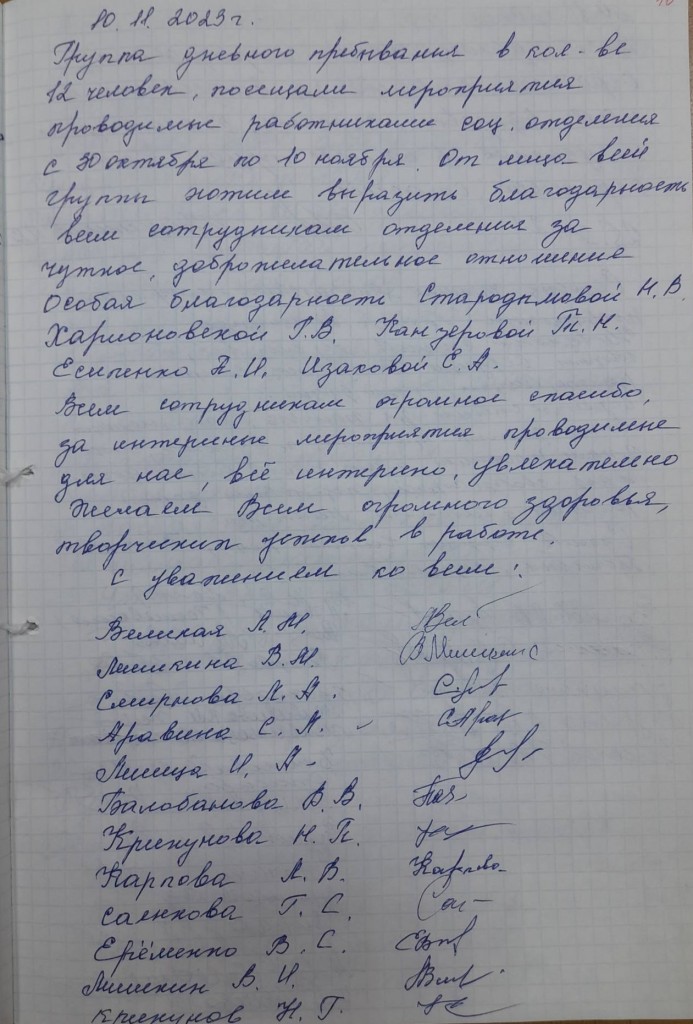 10.11.2023г.
Группа дневного пребывания в кол-ве
12 человек, посещали мероприятия
проводимые работниками соц. отделения
с 30 октября по 10 ноября. От лица всей
группы хотим выразить благодарность
всем сотрудникам отделения за
чуткое, доброжелательное отношение
Особая благодарность Стародымовой Н.В.
Харионовской Г.В. Канцеровой Т.Н.
Есипенко Л.И. Изаковой Е.А.
Всем сотрудникам огромное спасибо,
за интерисные мероприятия проводимые
для нас, всё интерисно, увлекательно
Желаем Всем огромного здоровья,
творческих успехов в работе.
С уважением ко всем:
Великая А.М.
Мишкина В.М.
Смирнова Л.А.
Аравина С.Л.
Лишица И.А.
Балобанова В.В.
Крикунова Н.П.
Карпова Л.В. Карпова
Саенкова Г.С.
Ефременко В.С.
Мишкин В.И.
Крикунов Н.Г.